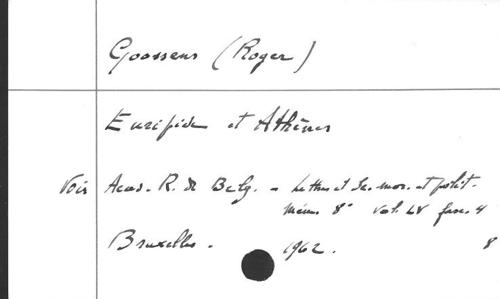 Goossens (Roger)
Euripide et Athènes
Voir Acad. R. de Belg. - Lettres et Sc. mor. et polit.
Mém. 8° Vol. LV fasc. 4
Bruxelles. 1962. 8